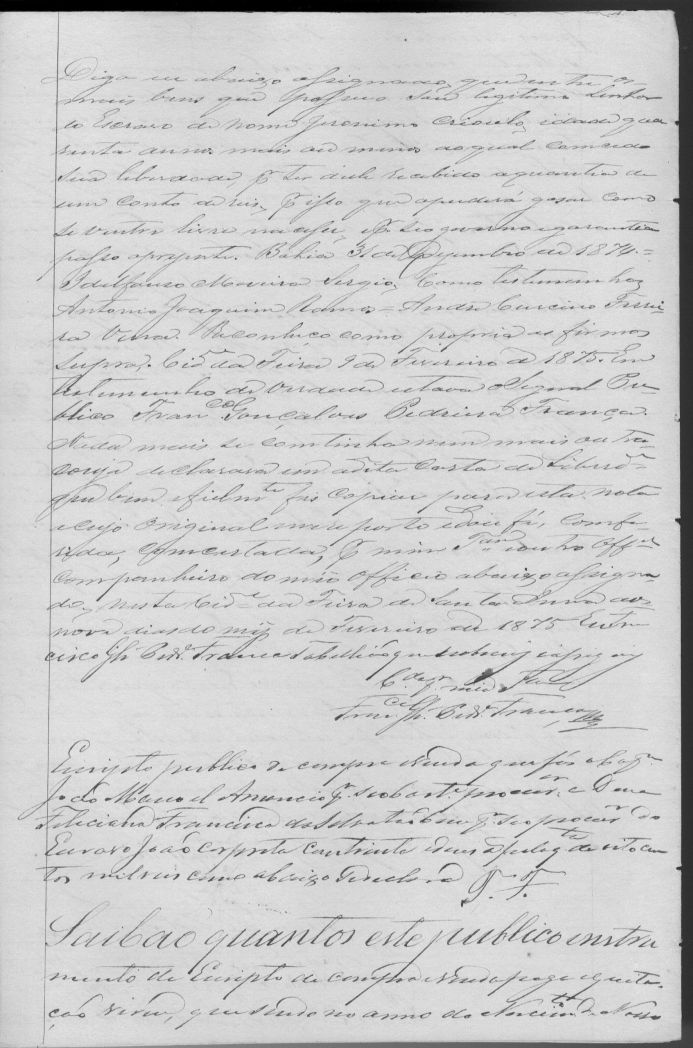 Digo eu abaixo assignado, que entre os
mais bens que possuo sou legitimo Senhor
do Escravo de nome Jeronimo crioulo, idade qua
renta annos mais ou menos ao qual concedo
sua liberdade, p. ter delle recebido a quantia de
um conto de reis, p. isso que a poderá gosar como
se ventre livre nacesse, e p. seo governo e garantia
passo a prezente. Bahia 31 de Dezembro de 1874.=
Idelfonso Moreira Sergio, Como testemunhas
Antonio Joaquim Ramos= Andre Curcino Ferrei
ra Vieira. Reconheco como proprias as firmas
supras. Cid.e da Feira 9 de Fevereiro de 1875. Em
testemunho de verdade estava o Signal Pu
blico Fran.co Gonçalves Pedreira França.
Nada mais se continha nem mais outra
couza declarava em a dita Carta de Liberd.e
que bem e fielm.te fis copiar para esta nota
e cujo original me reporto e dou fé, confe
rida, concertada, p. mim Tam. e outro Off.al
companheiro do meo officio abaixo assigna
do, nesta Cid.e da Feira de Santa Anna aos
nove dias do mez de Fevereiro de 1875 Eu Fran
cisco Gl. Pedr. França Tabellião que sobscrevi e assignei
C. da p. mim
Fran.co Gl. Pedr. França
Escripto publico de compra e venda que fás
João Manoel Amancio p. seo bast. procur.or a Dona
Feliciana Francisca da Silva p. seo procur.or do
Escravo João cor preta, constante de oitocen
tos mil reis como abaixo se declara
Saibaõ quantos este publico instru
mento de Escripto de compra e venda paga e quita
çaõ virem, que sendo no anno do Nascim.to de Nosso